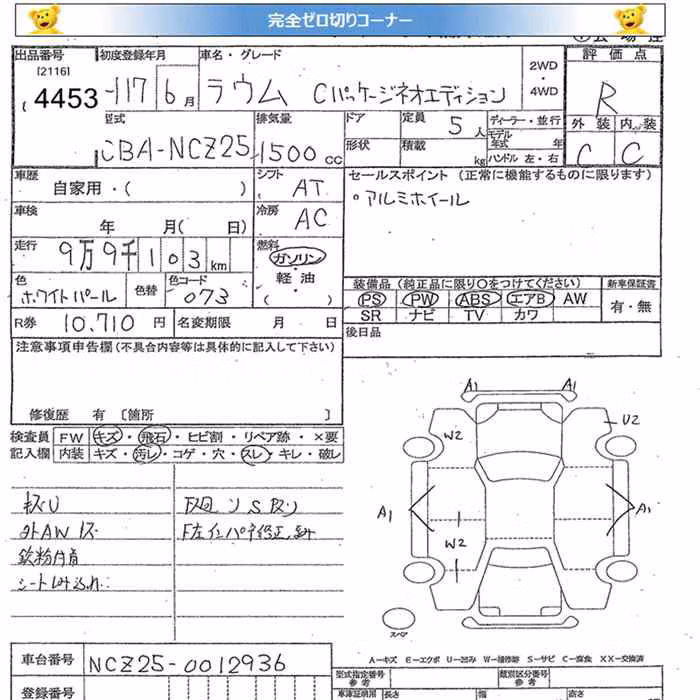 完全ゼロ切りコーナー
出品番号 初度登録年月 車名・グレード 評価点
[2116]
4453 H17 6月 ラウム Cパッケージネオエディション 2WD・4WD R
型式 排気量 ドア 定員 5人 ディーラー・並行 外装 内装
CBA-NCZ25 1500cc 形状 積載 kg モデル年式 年 C C
ハンドル 左・右
車歴 自家用・( ) シフト AT セールスポイント (正常に機能するものに限ります)
車検 年 月( 日) 冷房 AC ○アルミホイール
走行 9万9千103km 燃料 ガソリン・軽油 ( )
色 ホワイトパール 色替 色コード 073 装備品 (純正品に限り○をつけてください) 新車保証書
PS PW ABS エアB AW 有・無
R券 10,710円 名変期限 月 日 SR ナビ TV カワ
注意事項申告欄 (不具合内容等は具体的に記入して下さい) 後日品
修復歴 有 [箇所 ]
検査員 FW キズ・飛石・ヒビ割・リペア跡・×要
記入欄 内装 キズ・汚レ・コゲ・穴・スレ・キレ・破レ
A1 A1
W2 U2
A1 A1
W2
キズU
外AWキズ
鉄粉付着
スペア
A-キズ E-エクボ U-凹み W-補修跡 S-サビ C-腐食 XX-交換済
車台番号 NCZ25-0012936 型式指定番号 類別区分番号
参考 参考
登録番号 車庫証明用 長さ 幅 高さ